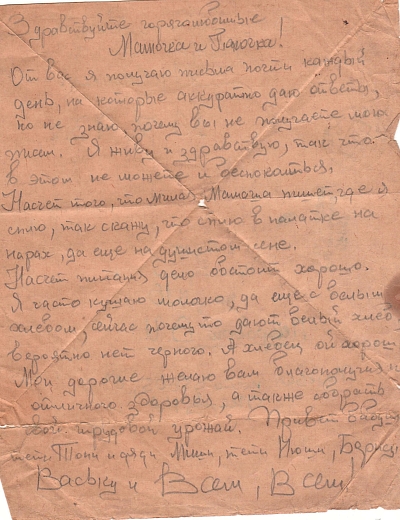 Здравствуйте горячолюбимые
Мамочка и Папочка!
От вас я получаю письма почти каждый
день, на которые аккуратно даю ответы,
но не знаю почему вы не получаете моих
писем. Я живу и здравствую, так что
в этом не можете и беспокоиться.
Насчет того, что милая Мамочка пишет, где я
сплю, так скажу, что сплю в палатке на
нарах, да еще на душистом сене.
Насчет питания дело обстоит хорошо.
Я часто кушаю молочко, да еще с белым
хлебом, сейчас почему то дают белый хлеб
вероятно нет черного. А хлебец ой хорош
Мои дорогие желаю вам благополучия и
отличного здоровья, а также собрать
свой трудовой урожай. Привет
тети Тони и дяди Миши, тети
Ваську и Всем, Всем